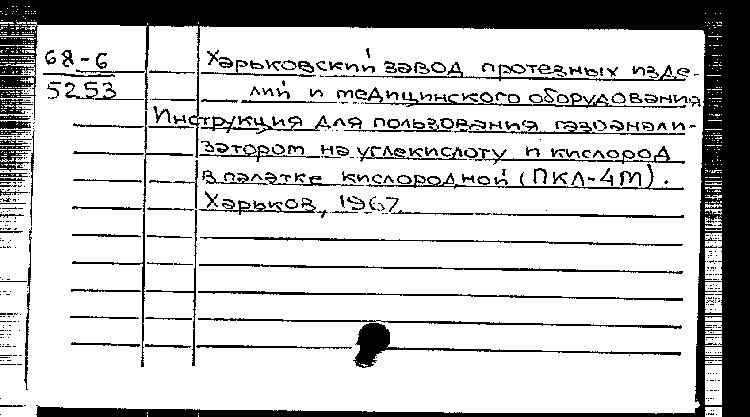 68-6
5253
Харьковский завод протезных изде-
лий и медицинского оборудования
Инструкция для пользования газоанали-
затором на углекислоту и кислород
в палатке кислородной (ПКЛ-4М).
Харьков, 1967.